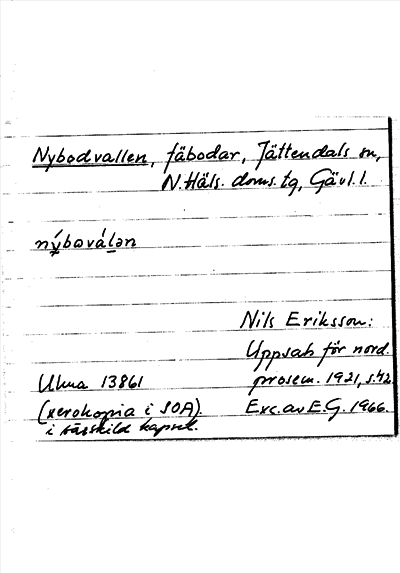 Nybodvallen, fäbodar, Jättendals sn,
N. Häls. doms. tg, Gävl. l.
nýbωválən
Nils Eriksson:
Uppsats för nord.
prosem. 1921, s. 42
Ulma 13861
(xerokopia i SOA).
i särskild kapsel.
Exc. av E.G. 1966.